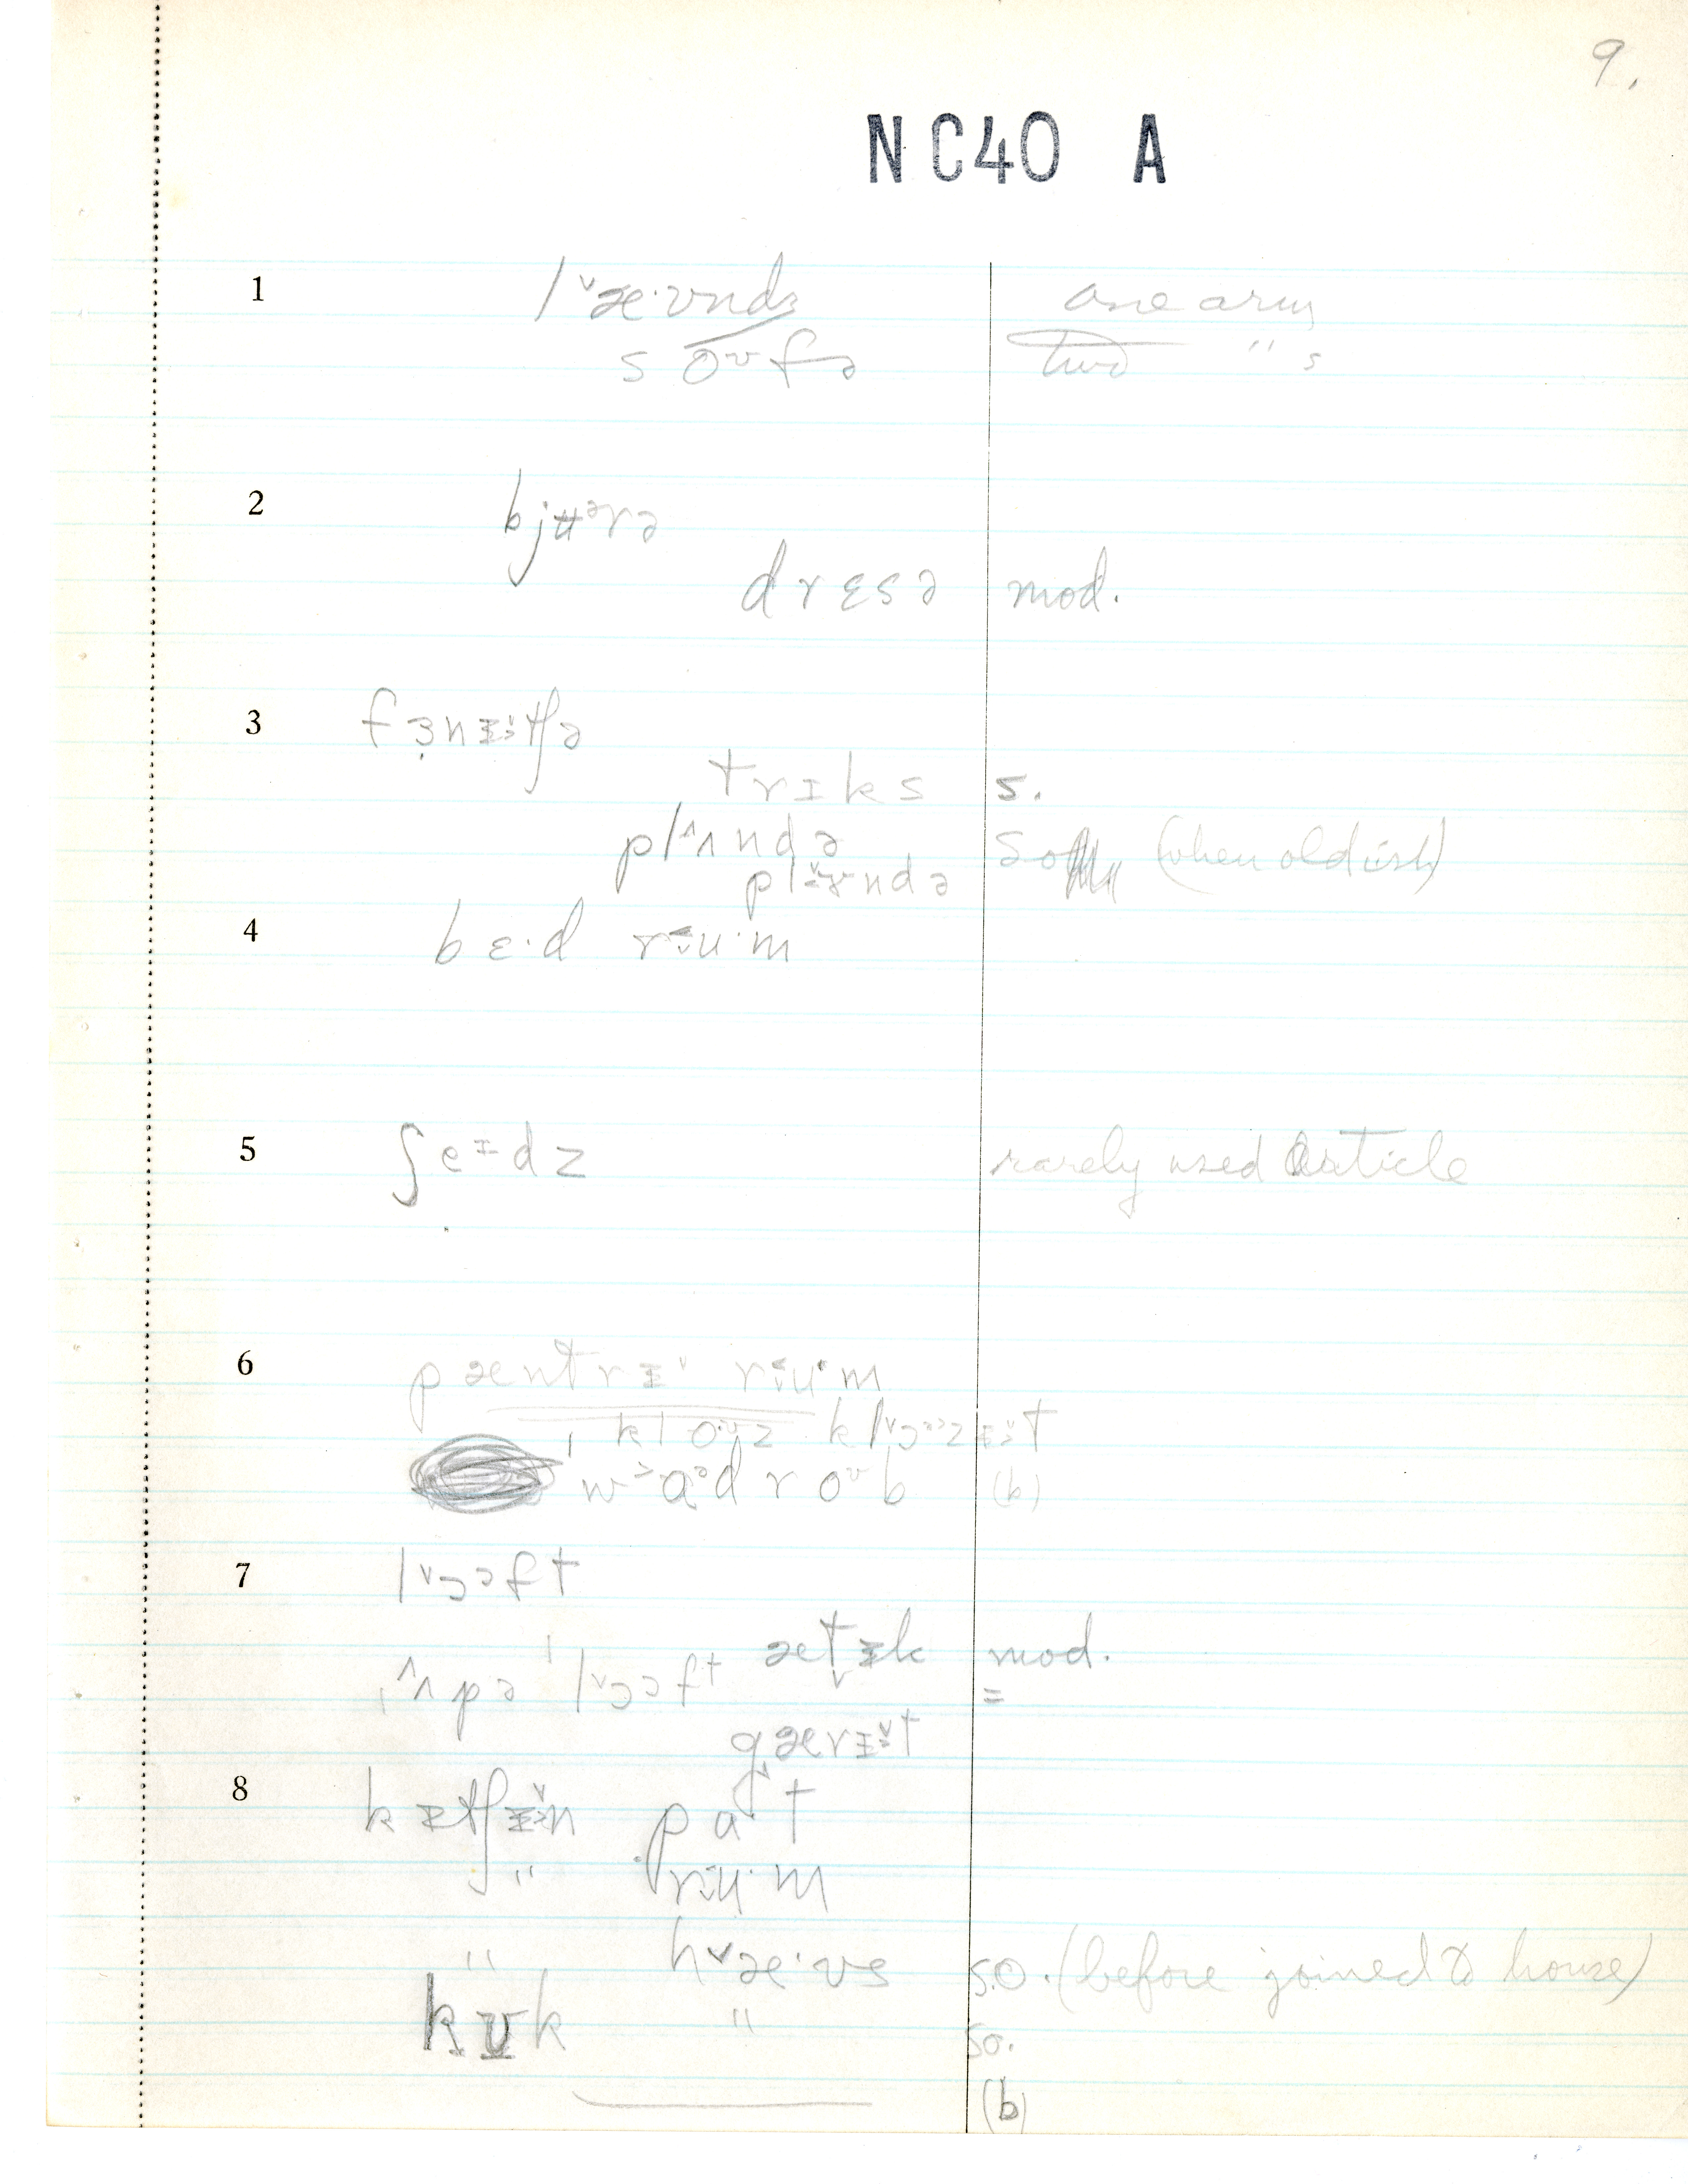 9.
NC40 A
1 lˇæ·ʊndʒ one arm
soᶷfə two " s
2 bjʉᵊrə
dresə mod.
3 fɜ̣nɪtʃə
trɪks s.
pl^ʌndə so (when oldish)
plɤndə
4 bɛ·d rʉ·m
5 ʃeᶦdz rarely used article
6 pæntrɪˇ rʉ·m
ˌkloᶷz klˇɔᵊzɪt
w>ɑᵊdroᶷb (b)
7 lˇɔᵊft
ætɪk mod.
ˌ^ʌpə ˈlˇɔᵊft =
gærɪt
8 kɪtʃɪn pɑ·t
" rʉ·m
" hˇæ·ʊs so. (before joined to house)
kʊk " so.
(b)